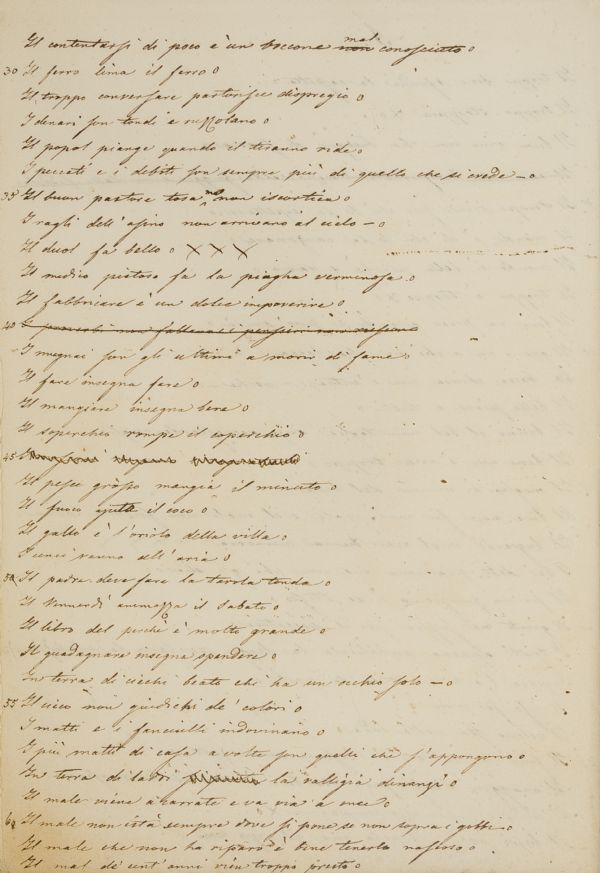 Il contentarsi di poco è un boccone mal non conosciuto
30 Il ferro lima il ferro
Il troppo conversare partorisce dispregio
I denari son tondi e ruzzolano
Il popol piange quando il tiranno ride
I peccati e i debiti son sempre più di quello che si crede
35 Il buon pastore tosa ma non iscortica
I ragli dell'asino non arrivano al cielo
Il duol fa bello X X X
Il medico pietoso fa la piagha verminosa
Il fabbricare è un dolce impoverire
40 I proverbi non fallano e i pensieri non riescono
I mugnai son gli ultimi a morir di fame
Il fare insegna fare
Il mangiare insegna bere
Il soperchio rompe il coperchio
45
Il pesce grosso mangia il minuto
Il fuoco ajuta il coco
Il gallo è l'oriolo della villa
I cenci vanno all'aria
50 Il padre deve fare la tavola tonda
Il Vennerdì ammazza il Sabato
Il libro del perchè è molto grande
Il guadagnare insegna spendere
In terra di ciechi beato chi ha un occhio solo
55 Il cieco non giudichi de' colori
I matti e i fanciulli indovinano
I più matti di casa a volte son quelli che s'appongono
In terra di ladri la valligia dinanzi
Il male viene a carrate e va via a once
60 Il male non istà sempre dove si pone se non sopra i gobbi
Il male che non ha riparo è bene tenerlo nascoso
Il mal de' cent'anni vien troppo presto